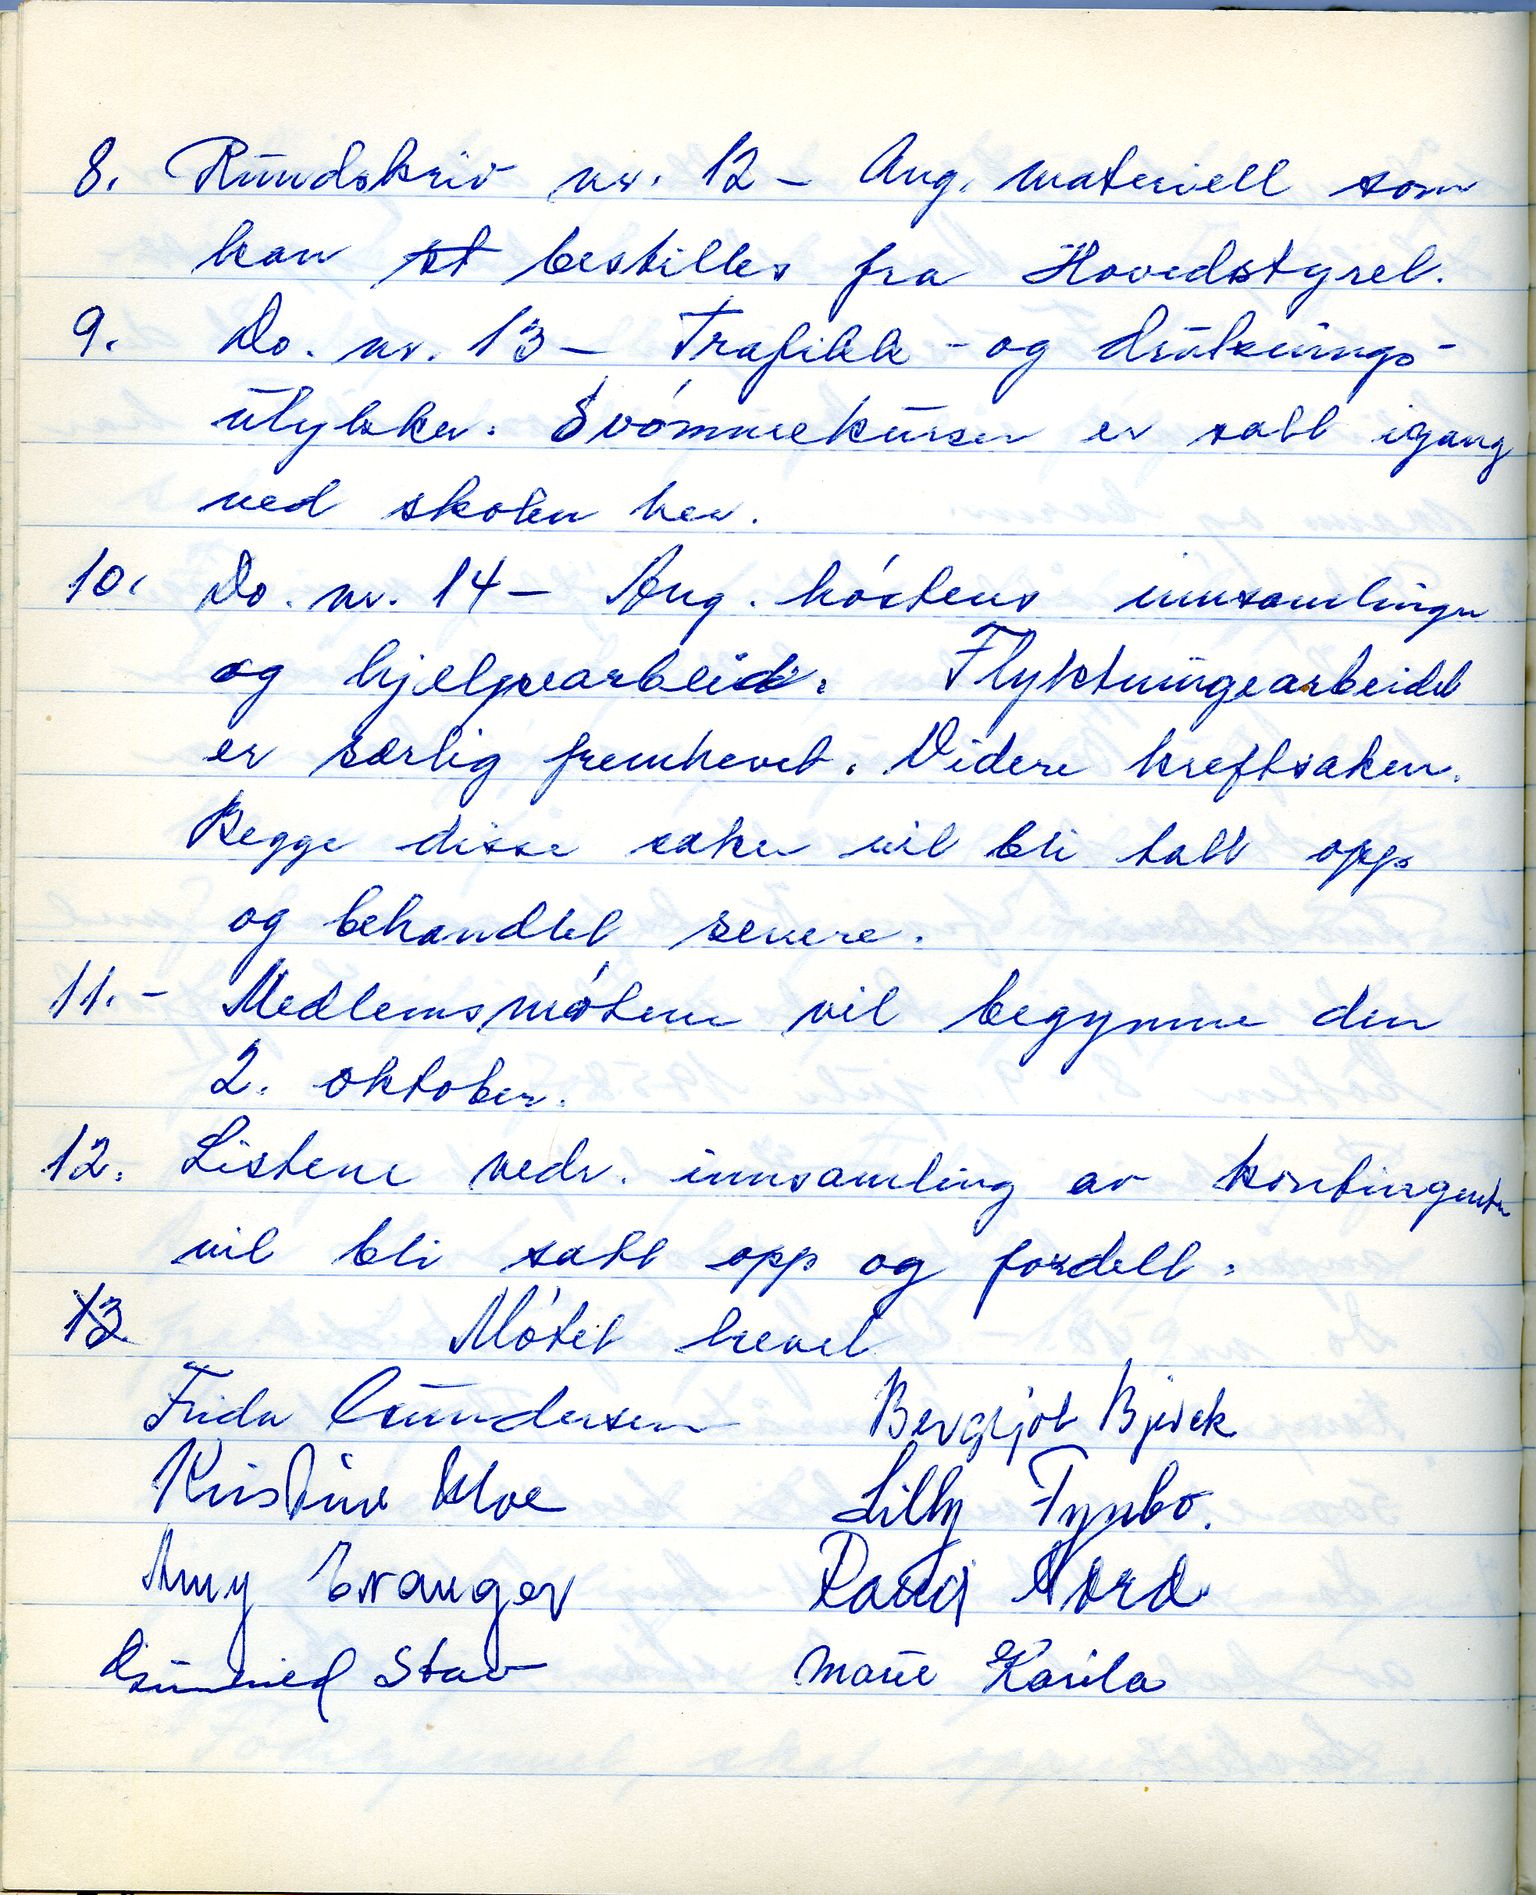 8. Rundskriv nr. 12 – Ang. materiell som
kan st bestilles fra Hovedstyret.
9. Do. nr. 13 – Trafikk- og druknings-
ulykker. Svømmekurser er satt igang
ved skolen her.
10. Do. nr. 14 – Ang. høstens innsamlinger
og hjelpearbeide. Flyktningearbeidet
er særlig fremhevet. Videre kreftsaken.
Begge disse saker vil bli tatt opp
og behandlet senere.
11. – Medlemsmøtene vil begynne den
2. oktober.
12. Listene vedr. innsamling av kontingenten
vil bli satt opp og fordelt.
13 Møtet hevet
Frida Gundersen Bergljot Bjørck
Kristine Moe Lilly Tynbo.
Amy Evanger Randi Nord
Gunnhild Stav Marie Karila